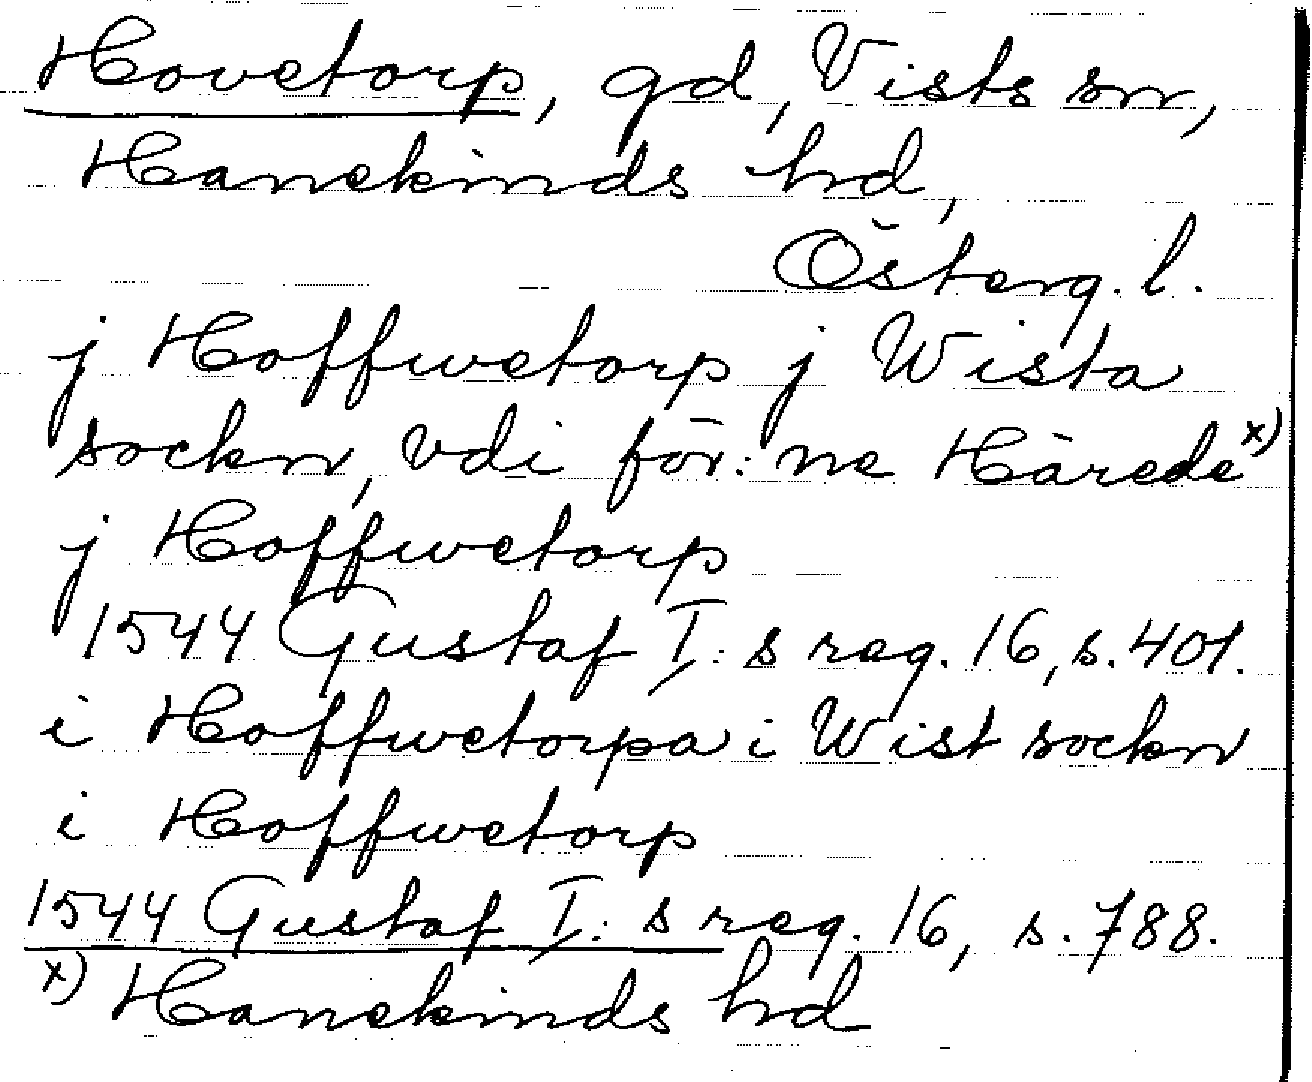 Hovetorp, gd, Vists sn,
Hanekinds hd,
Österg. l.
j Hoffwetorp j Wista
sockn, vdi för:ne Härede x)
j Hoffwetorp
1544 Gustaf I:s reg. 16, s. 401.
i Hoffwetorpa i Wist sockn
i Hoffwetorp
1544 Gustaf I:s reg. 16, s. 788.
x) Hanekinds hd